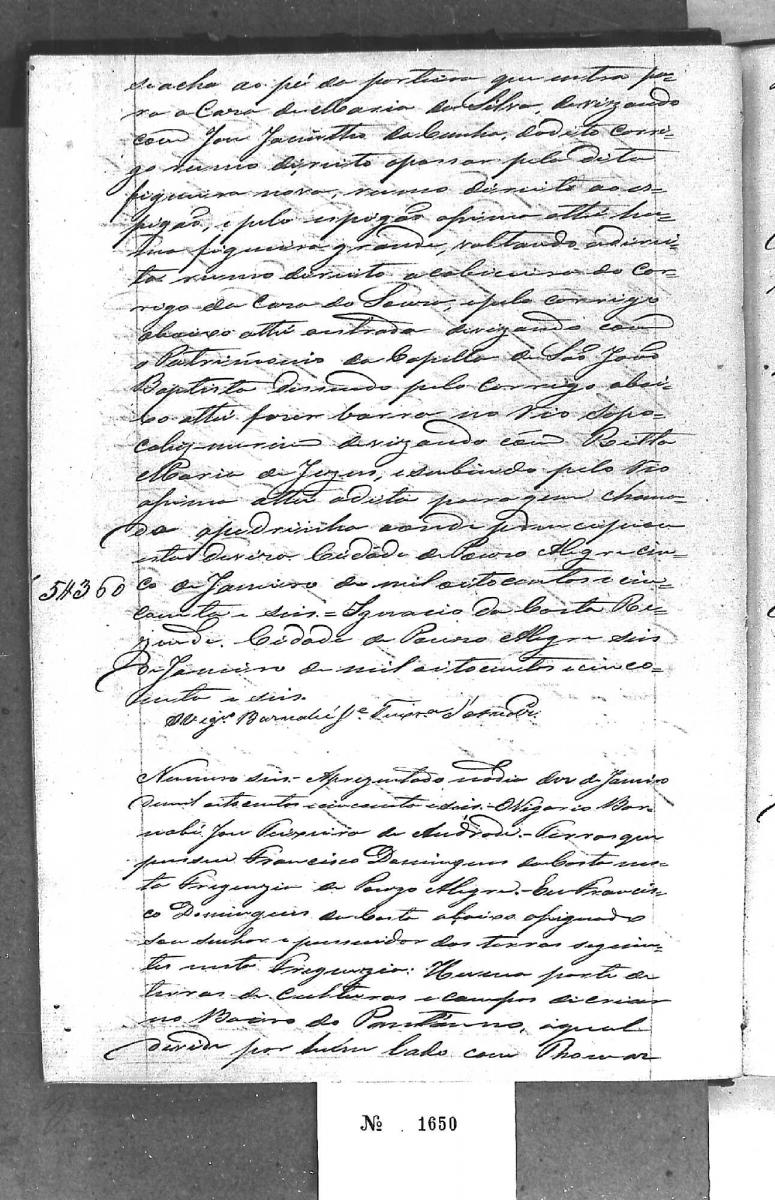 se acha ao pé da porteira que entra pa=
ra a Caza de Maria da Silva, devizando
com Joze Jacintho da Cunha, do dito corri=
go rumo direito apassar pela dita
figueira nova, rumo direito ao es=
pigão, e pelo espigão assima athe hu=
ma figueira grande, voltando adirei=
ta rumo direito a cabiceira do cor=
rigo da Caza do Souro, e pelo corrigo
abaixo athe a estrada devizando com
o Patrimonio da Capella de São João
Baptista dessendo pelo Corrigo abai=
xo athe fazer barra no Rio Sapo=
cahy-merim devizando com Ritta
Maria de Jezus, e subindo pelo Rio
assima athe adita paragem chama=
da apedrinha aonde principiou
esta deviza. Cidade de Pouzo Alegre cin=
54360
co de Janeiro de mil oito centos e cin=
coenta e seis. = Ignacio da Costa Re=
zende. Cidade de Pouzo Alegre seis
de Janeiro de mil oitocentos e cinco=
enta e seis.
O Vigr.º Barnabé Je Teixra d'Andre.
Numero seis = Aprezentado no dia dez de Janeiro
de mil oitocentos e cincoenta e seis = O Vigario Bar=
nabé Joze Teixeira de Andrade. = Terras que
possue Francisco Domingues da Costa nes=
ta Freguezia de Pouzo Alegre. = Eu Francis=
co Domingues da Costa abaixo assignado
sou senhor e possuidor das terras seguin=
tes nesta Freguezia: Huma parte de
terras de Culturas e campos de criar
no Bairro do Pantano, a qual
devide por hum lado com Thomaz
Nº 1650